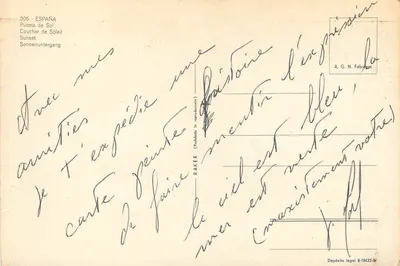 906 - ESPAÑA
Puesta de Sol
Coucher de Soleil
Sunset
Sonnenuntergang
A. G. N.
(Prohibida la reproducción)
Depósito legal B-
Avec mes
amitiés
je t'expédie une
carte peinte histoire
de faire mentir l'expression
le ciel est bleu, la
mer est verte
(maoxistement votre)
j.